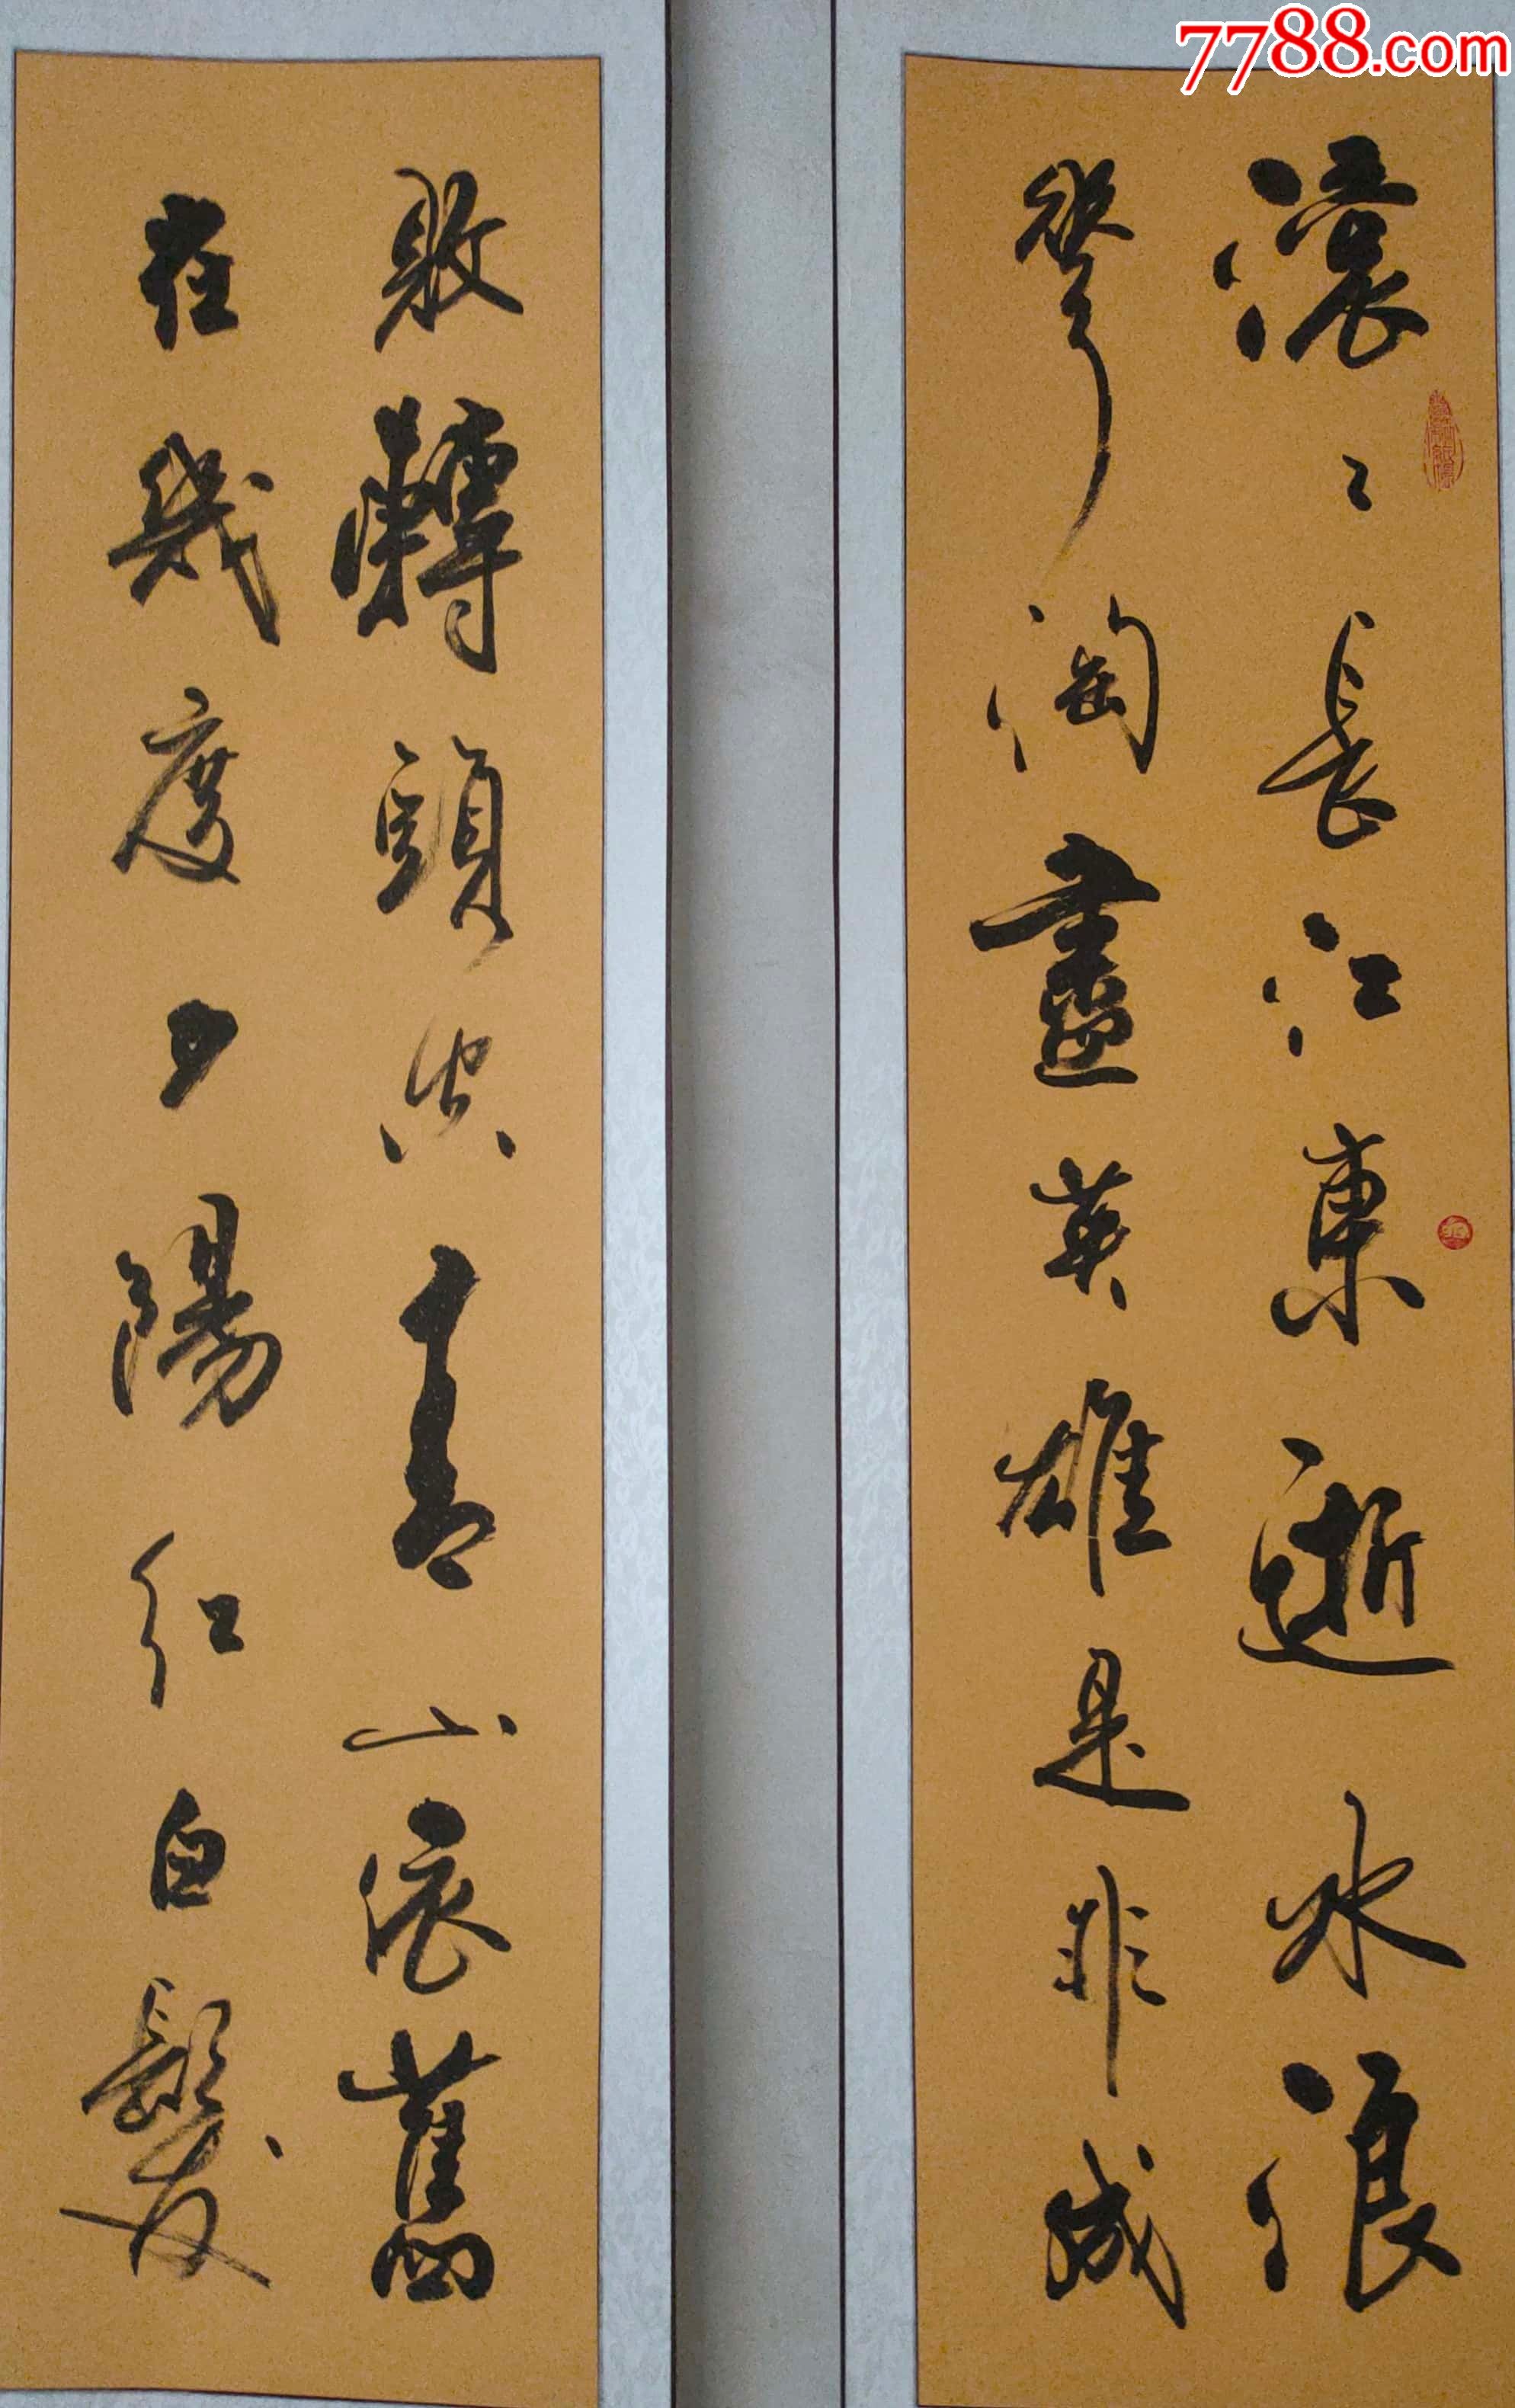 7788.com
滚〻長江東逝水浪
花淘盡英雄是非成
敗轉頭空青山依舊
在幾度夕陽紅白髮